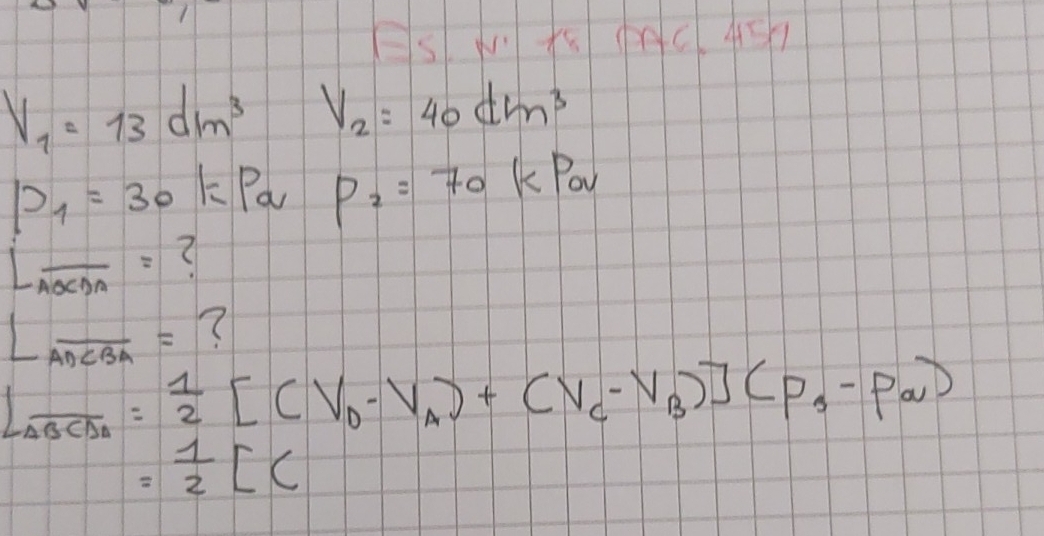 Es. N. 18 PAG. 459
V₁ = 13 dm³ V₂ = 40 dm³
p₁ = 30 kPa p₂ = 70 kPa
L_ABCDA = ?
L_ADCBA = ?
L_ABCDA = 1/2 [(V_D - V_A) + (V_C - V_B)] (p_B - p_A)
= 1/2 [(